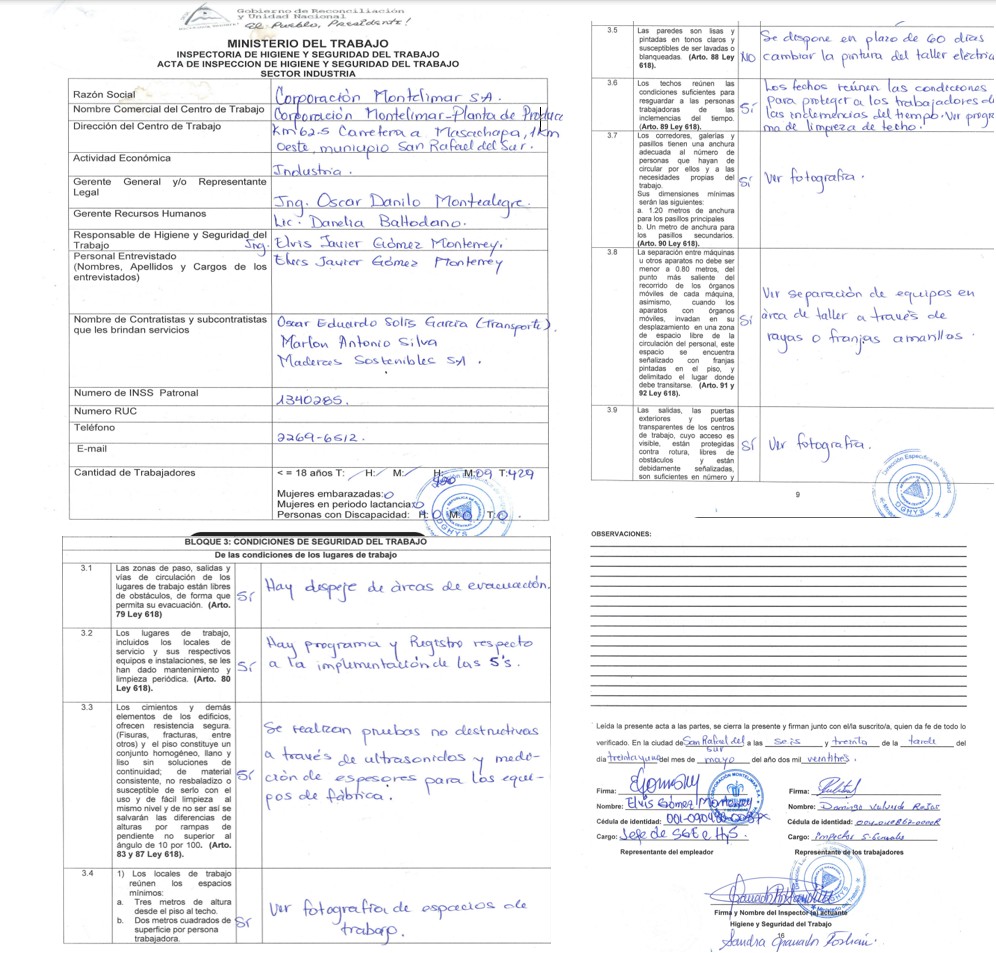 Gobierno de Reconciliación
y Unidad Nacional
El Pueblo, Presidente!
MINISTERIO DEL TRABAJO
INSPECTORIA DE HIGIENE Y SEGURIDAD DEL TRABAJO
ACTA DE INSPECCION DE HIGIENE Y SEGURIDAD DEL TRABAJO
SECTOR INDUSTRIA
Razón Social Corporación Montelimar S.A.
Nombre Comercial del Centro de Trabajo Corporación Montelimar-Planta de
Dirección del Centro de Trabajo Km 62.5 Carretera a Masachapa, 1km
oeste, municipio San Rafael del Sur.
Actividad Económica
Industria.
Gerente General y/o Representante
Legal Ing. Oscar Danilo Montealegre.
Gerente Recursos Humanos Lic. Danelia Baltodano.
Responsable de Higiene y Seguridad del
Trabajo Ing. Elvis Javier Gómez Monterrey.
Personal Entrevistado Elvis Javier Gómez Monterrey
(Nombres, Apellidos y Cargos de los
entrevistados)
Nombre de Contratistas y subcontratistas
que les brindan servicios
Oscar Eduardo Solís García (Transporte).
Marlon Antonio Silva
Maderas Sostenibles S.A.
Numero de INSS Patronal 1340285.
Numero RUC
Teléfono 2269-6512.
E-mail
Cantidad de Trabajadores <= 18 años T: H: M: H: M: 09 T: 429
Mujeres embarazadas: 0
Mujeres en periodo lactancia: 0
Personas con Discapacidad: H: 0 M: 0 T: 0.
BLOQUE 3: CONDICIONES DE SEGURIDAD DEL TRABAJO
De las condiciones de los lugares de trabajo
3.1
Las zonas de paso, salidas y
vías de circulación de los
lugares de trabajo están libres
de obstáculos, de forma que
permita su evacuación. (Arto.
79 Ley 618)
Sí
Hay despeje de áreas de evacuación.
3.2
Los lugares de trabajo,
incluidos los locales de
servicio y sus respectivos
equipos e instalaciones, se les
han dado mantenimiento y
limpieza periódica. (Arto. 80
Ley 618).
Sí
Hay programa y Registro respecto
a la implementación de las 5's.
3.3
Los cimientos y demás
elementos de los edificios,
ofrecen resistencia segura.
(Fisuras, fracturas, entre
otros) y el piso constituye un
conjunto homogéneo, llano y
liso sin soluciones de
continuidad; de material
consistente, no resbaladizo o
susceptible de serlo con el
uso y de fácil limpieza al
mismo nivel y de no ser así se
salvarán las diferencias de
alturas por rampas de
pendiente no superior al
ángulo de 10 por 100. (Arto.
83 y 87 Ley 618).
Sí
Se realizan pruebas no destructivas
a través de ultrasonidos y medi-
ción de espesores para los equi-
pos de fábrica.
3.4
1) Los locales de trabajo
reúnen los espacios
mínimos:
a. Tres metros de altura
desde el piso al techo.
b. Dos metros cuadrados de
superficie por persona
trabajadora.
Sí
Ver fotografía de espacios de
trabajo.
3.5
Las paredes son lisas y
pintadas en tonos claros y
susceptibles de ser lavadas o
blanqueadas. (Arto. 88 Ley
618).
NO
Se dispone en plazo de 60 días
cambiar la pintura del taller
3.6
Los techos reúnen las
condiciones suficientes para
resguardar a las personas
trabajadoras de las
inclemencias del tiempo.
(Arto. 89 Ley 618)
Sí
Los techos reúnen las condiciones
para proteger a los trabajadores de
las inclemencias del tiempo. Ver progra
ma de limpieza de techo.
3.7
Los corredores, galerías y
pasillos tienen una anchura
adecuada al número de
personas que hayan de
circular por ellos y a las
necesidades propias del
trabajo.
Sus dimensiones mínimas
serán las siguientes:
a. 1.20 metros de anchura
para los pasillos principales
b. Un metro de anchura para
los pasillos secundarios.
(Arto. 90 Ley 618).
Sí
Ver fotografía.
3.8
La separación entre máquinas
u otros aparatos no debe ser
menor a 0.80 metros, del
punto más saliente del
recorrido de los órganos
móviles de cada máquina,
asimismo, cuando los
aparatos con órganos
móviles, invadan en su
desplazamiento en una zona
de espacio libre de la
circulación del personal, este
espacio se encuentra
señalizado con franjas
pintadas en el piso, y
delimitado el lugar donde
debe transitarse. (Arto. 91 y
92 Ley 618).
Sí
Ver separación de equipos en
área de taller a través de
rayas o franjas amarillas.
3.9
Las salidas, las puertas
exteriores y puertas
transparentes de los centros
de trabajo, cuyo acceso es
visible, están protegidas
contra rotura, libres de
obstáculos y están
debidamente señalizadas,
son suficientes en número y
Sí
Ver fotografía.
9
OBSERVACIONES:
Leída la presente acta a las partes, se cierra la presente y firman junto con el/la suscrito/a, quien da fe de todo lo
verificado. En la ciudad de San Rafael del sur a las seis y treinta de la tarde del
día treinta y uno del mes de mayo del año dos mil veintitrés.
Firma:
Nombre: Elvis Gómez Monterrey
Cédula de identidad:
Cargo: Jefe de SGE e HyS.
Representante del empleador
Firma:
Nombre: Domingo
Cédula de identidad:
Cargo:
Representante de los trabajadores
Firma y Nombre del Inspector (a) actuante
Higiene y Seguridad del Trabajo
16
Sandra